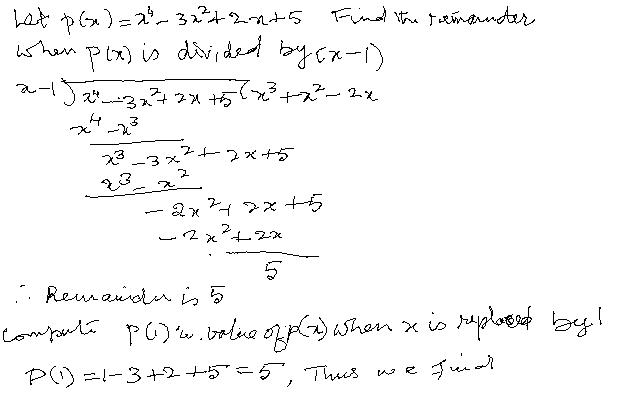 Let p(x) = x⁴ - 3x² + 2x + 5 Find the remainder
when p(x) is divided by (x-1)
x-1) x⁴ - 3x² + 2x + 5 ( x³ + x² - 2x
x⁴ - x³
x³ - 3x² + 2x + 5
x³ - x²
- 2x² + 2x + 5
- 2x² + 2x
5
∴ Remainder is 5
Compute P(1) value of p(x) when x is replaced by 1
P(1) = 1-3+2+5 = 5, Thus we find